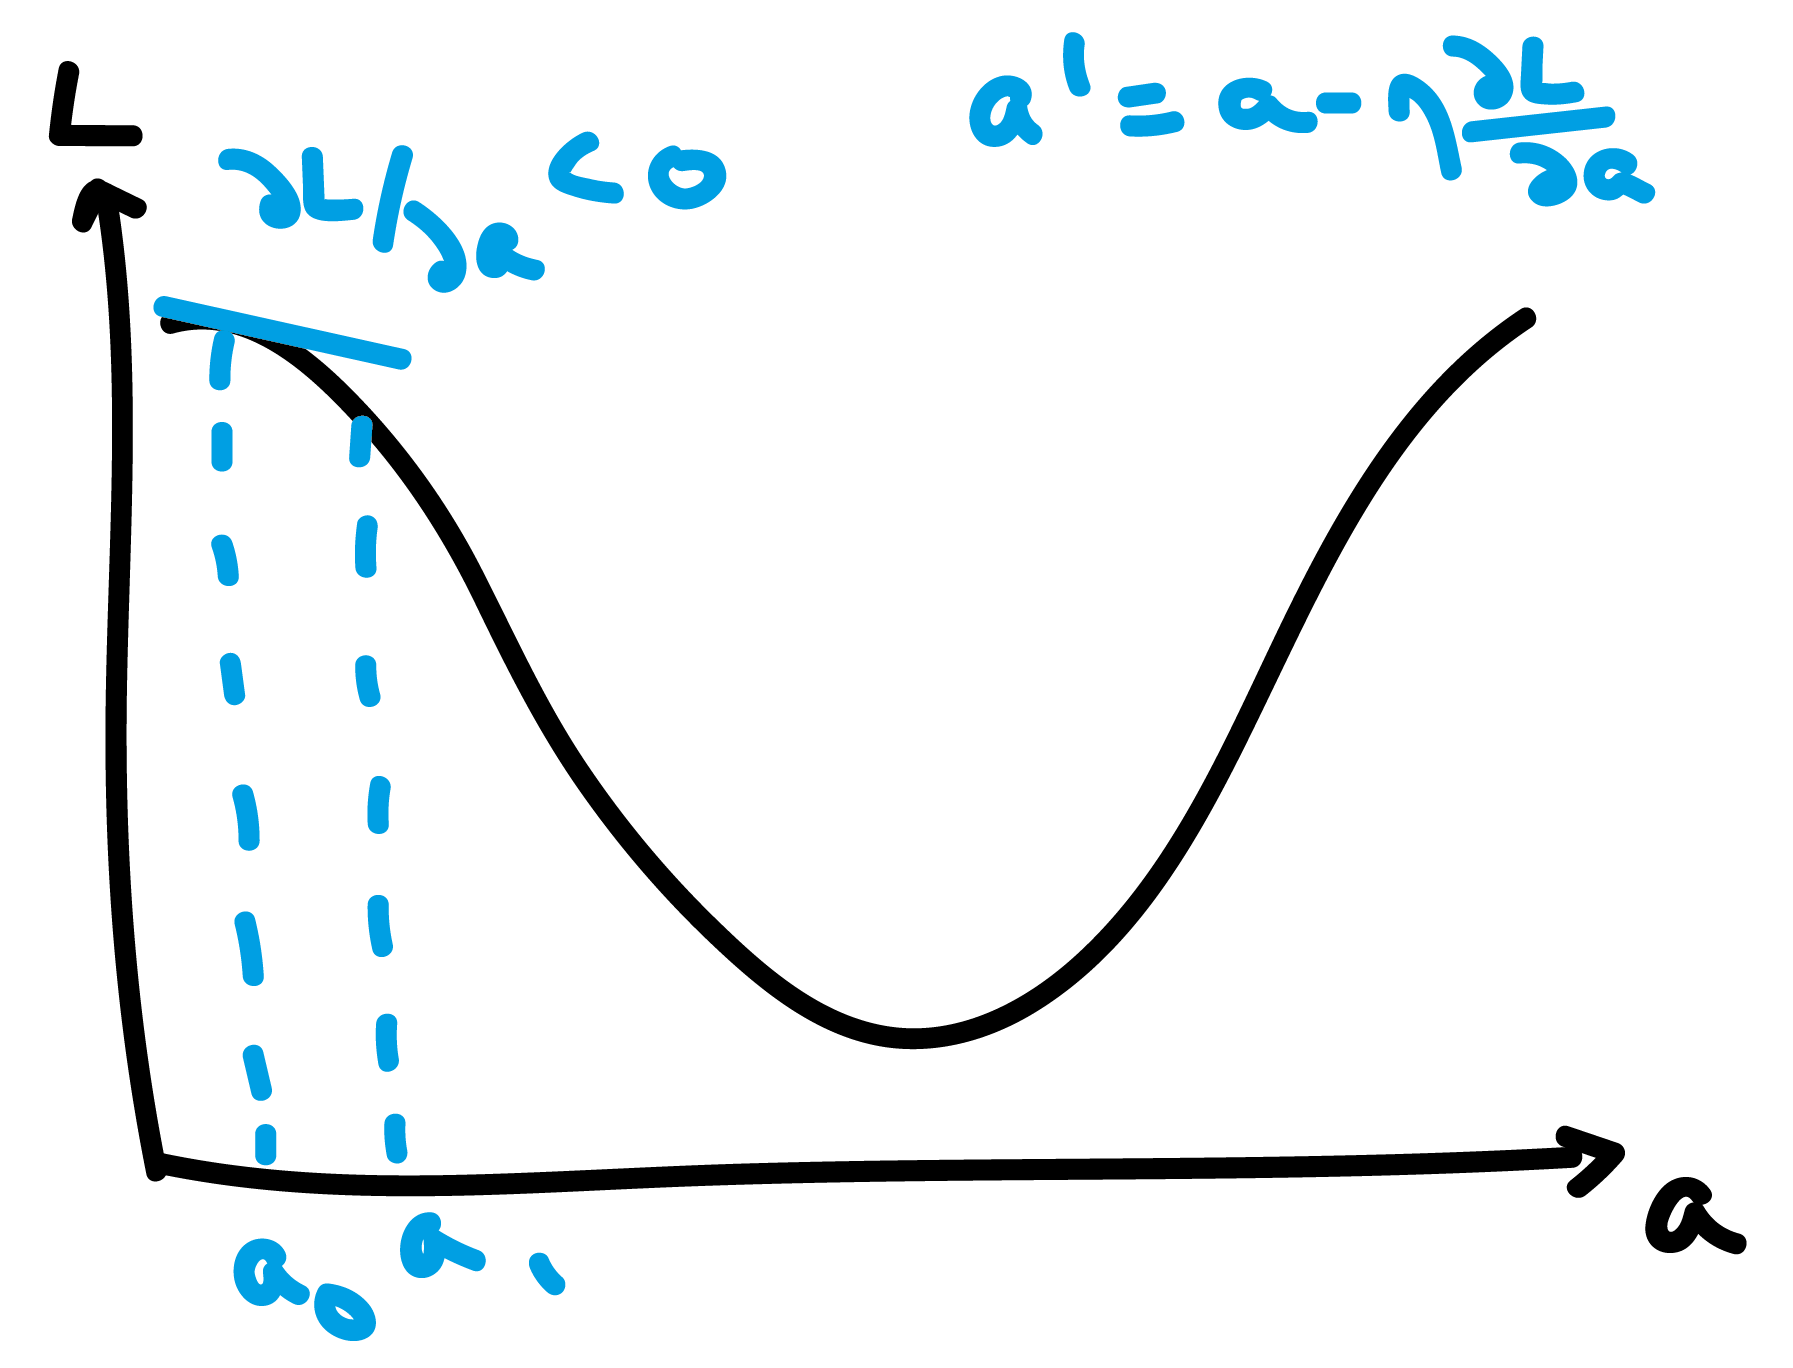 L
∂L/∂a < 0
a' = a - η ∂L/∂a
a₀ a₁
a